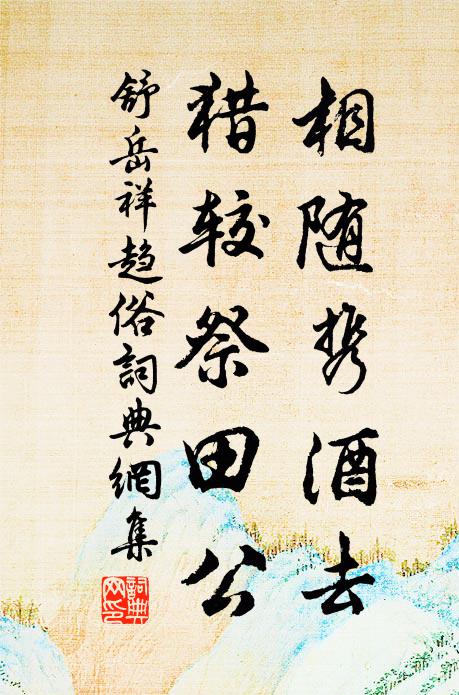 相随携酒去
猎较祭田公
舒岳祥趋俗詞典網集
詞典